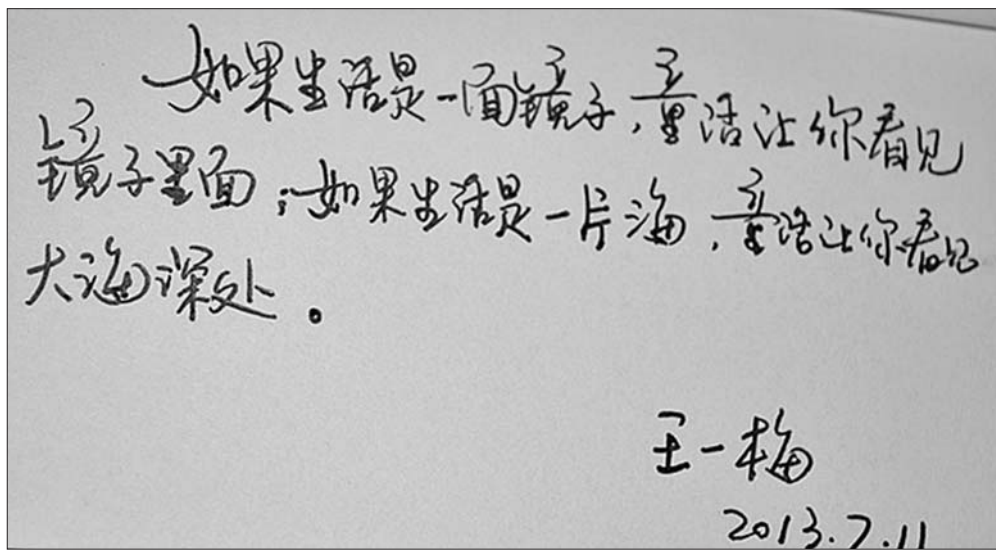 如果生活是一面镜子，童话让你看见
镜子里面；如果生活是一片海，童话让你看见
大海深处。
王一梅
2013.7.11